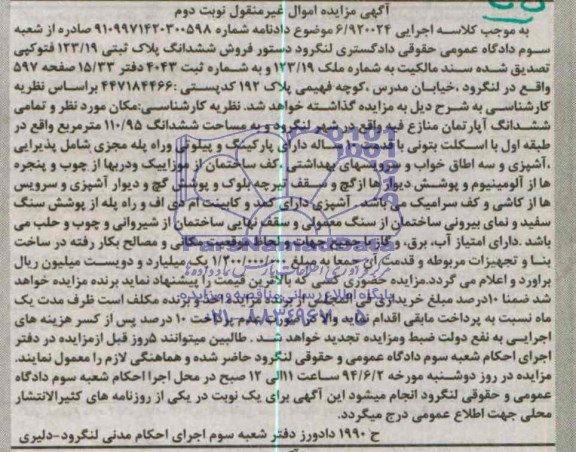 آگهی مزایده اموال غیرمنقول نوبت دوم
به موجب کلاسه اجرایی ۶/۹۲۰۰۲۴ موضوع دادنامه شماره ۹۱۰۹۹۷۱۴۲۰۳۰۰۵۹۸ صادره از شعبه
سوم دادگاه عمومی حقوقی دادگستری لنگرود دستور فروش ششدانگ پلاک ثبتی ۱۲۳/۱۹ فتوکپی
تصدیق شده سند مالکیت به شماره ملک ۱۲۳/۱۹ و به شماره ثبت ۴۰۴۳ دفتر ۱۵/۳۳ صفحه ۵۹۷
واقع در لنگرود ،خیابان مدرس ،کوچه فهیمی پلاک ۱۹۲ کدپستی :۴۴۷۱۸۴۴۶۶ براساس نظریه
کارشناسی به شرح ذیل به مزایده گذاشته خواهد شد. نظریه کارشناسی:مکان مورد نظر و تمامی
ششدانگ آپارتمان منازع فیه واقع در شهر لنگرود و به مساحت ششدانگ ۱۱۰/۹۵ مترمربع واقع در
طبقه اول با اسکلت بتونی با قدمت ۱۰ ساله دارای پارکینگ و پیلوتی وراه پله مجزی شامل پذیرایی
،آشپزی و سه اطاق خواب و سرویسهای بهداشتی ،کف ساختمان از موزاییک ودربها از چوب و پنجره
ها از آلومینیوم و پوشش دیوار ها ازگچ و سقف تیرچه بلوک و پوشش گچ و دیوار آشپزی و سرویس
ها از کاشی و کف سرامیک می باشد . آشپزی دارای کمد و کابینت ام دی اف و راه پله از پوشش سنگ
سفید و نمای بیرونی ساختمان از سنگ معمولی و سقف نهایی ساختمان از شیروانی و چوب و حلب می
باشد .دارای امتیاز آب، برق، و گاز با جمیع جهات و لحاظ موقعیت مکانی و مصالح بکار رفته در ساخت
بنا و تجهیزات مربوطه و قدمت آن جمعا به مبلغ ۱/۲۰۰/۰۰۰/۰۰۰ یک میلیارد و دویست میلیون ریال
براورد و اعلام می گردد.مزایده حضوری کسی که بالاترین قیمت را پیشنهاد نماید برنده مزایده خواهد
شد ضمنا ۱۰درصد مبلغ خریداری فی المجلس از برنده مزایده اخذ و برنده مکلف است ظرف مدت یک
ماه نسبت به پرداخت مابقی اقدام نماید والا در صورت عدم پرداخت ۱۰ درصد پس از کسر هزینه های
اجرایی به نفع دولت ضبط ومزایده تجدید خواهد شد . طالبین میتوانند ۵روز قبل ازمزایده در دفتر
اجرای احکام شعبه سوم دادگاه عمومی و حقوقی لنگرود حاضر شده و هماهنگی لازم را معمول نمایند.
مزایده در روز دوشنبه مورخه ۹۴/۶/۲ ساعت ۱۱الی ۱۲ صبح در محل اجرا احکام شعبه سوم دادگاه
عمومی و حقوقی لنگرود انجام میشود این آگهی برای یک نوبت در یکی از روزنامه های کثیرالانتشار
محلی جهت اطلاع عمومی درج میگردد.
ح ۱۹۹۰ دادورز دفتر شعبه سوم اجرای احکام مدنی لنگرود-دلیری